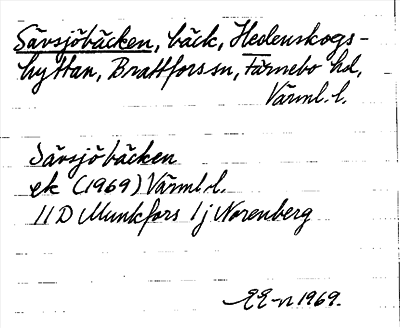 Sävsjöbäcken, bäck, Hedenskogs-
hyttan, Brattfors sn, Färnebo hd,
Värml. l.
Sävsjöbäcken
ek (1969) Värml. l.
11D Munkfors 1j Norenberg
EE-n 1969.